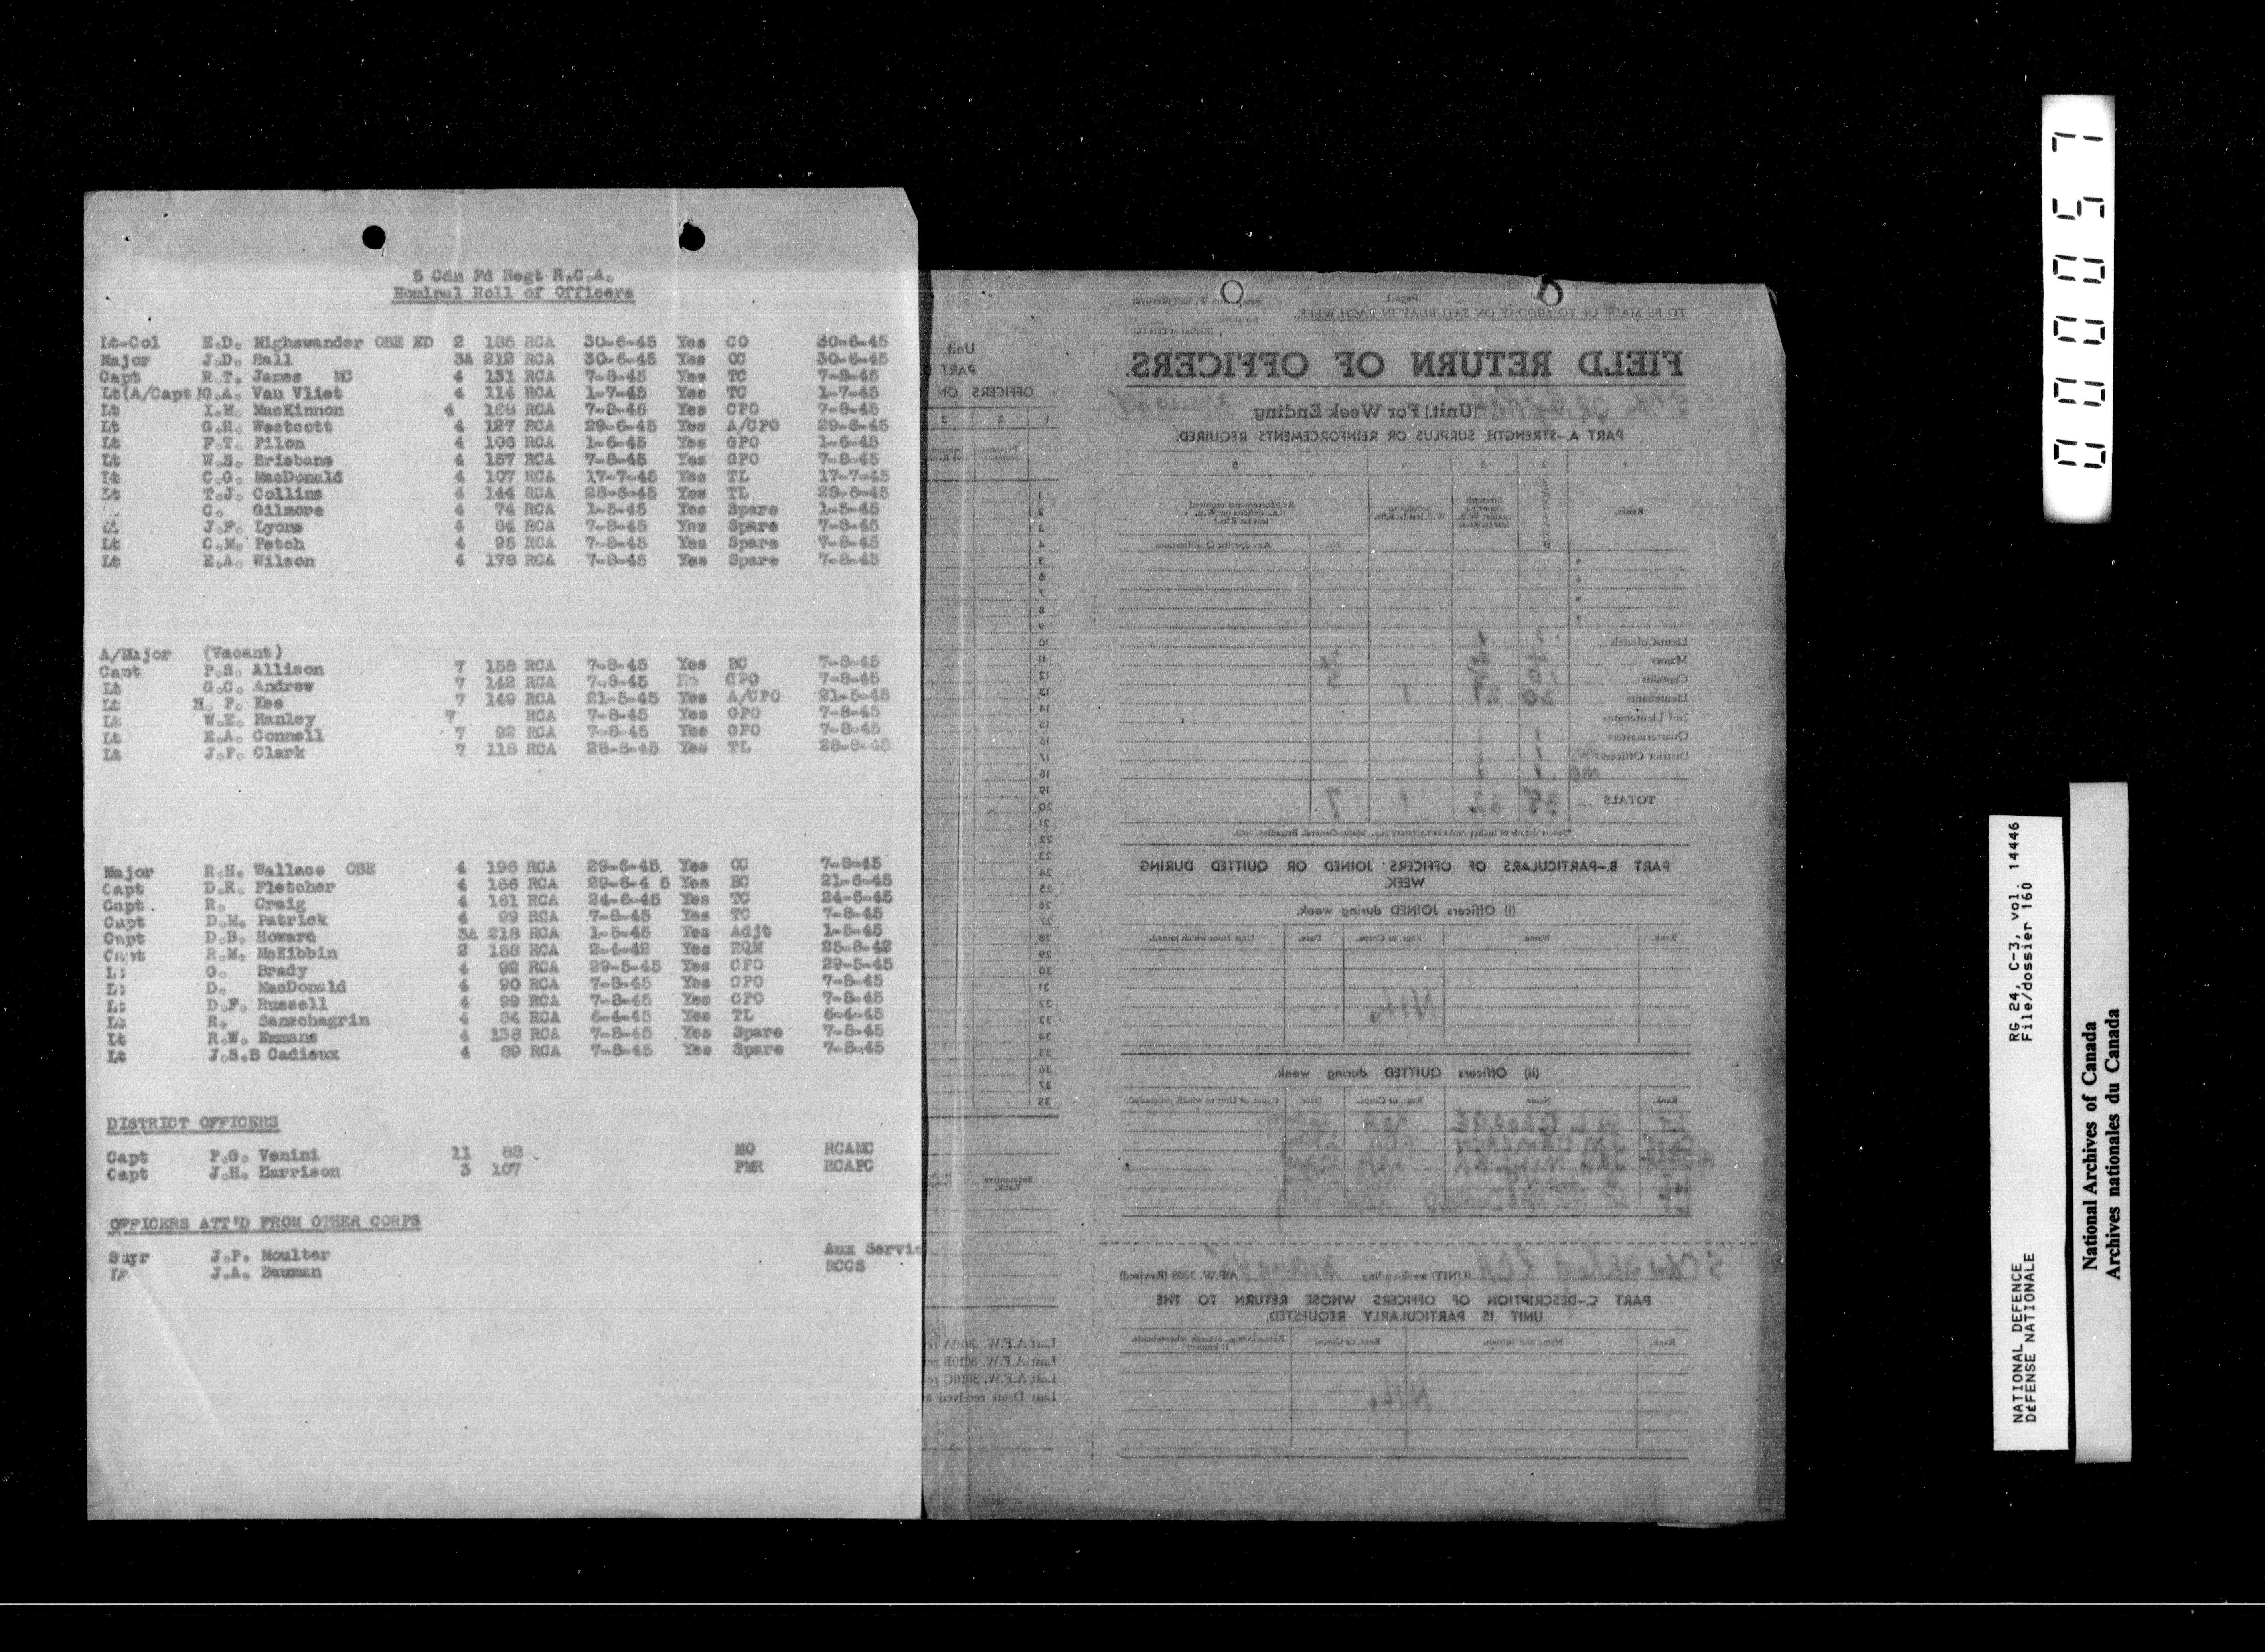 5 Cdn Fd Regt R.C.A.
Nominal Roll of Officers
Lt-Col E.D. Highswander OBE ED 2 185 RCA 30-6-45 Yes CO 30-6-45
Major J.D. Hall 3A 212 RCA 30-6-45 Yes OC 30-6-45
Capt R.T. James MC 4 131 RCA 7-8-45 Yes TC 7-8-45
Lt(A/Capt)G.A. Van Vliet 4 114 RCA 1-7-45 Yes TC 1-7-45
Lt I.M. MacKinnon 4 RCA 7-8-45 Yes CPO 7-8-45
Lt G.R. Westcott 4 127 RCA 29-6-45 Yes A/CPO 29-6-45
Lt F.T. Pilon 4 106 RCA 1-6-45 Yes GPO 1-6-45
Lt W.S. Brisbane 4 157 RCA 7-8-45 Yes GPO 7-8-45
Lt C.G. MacDonald 4 107 RCA 17-7-45 Yes TL 17-7-45
Lt T.J. Collins 4 144 RCA 28-6-45 Yes TL 28-6-45
C. Gilmore 4 74 RCA 1-5-45 Yes Spare 1-5-45
Lt J.F. Lyons 4 RCA 7-8-45 Yes Spare 7-8-45
Lt C.M. Petch 4 95 RCA 7-8-45 Yes Spare 7-8-45
Lt E.A. Wilson 4 178 RCA 7-8-45 Yes Spare 7-8-45
A/Major (Vacant)
Capt P.S. Allison 7 158 RCA 7-8-45 Yes BC 7-8-45
Lt G.C. Andrew 7 142 RCA 7-8-45 No CPO 7-8-45
Lt H. P. Kee 7 149 RCA 21-5-45 Yes A/CPO 21-5-45
Lt W.E. Hanley 7 RCA 7-8-45 Yes GPO 7-8-45
Lt E.A. Connell 7 92 RCA 7-8-45 Yes GPO 7-8-45
Lt J.P. Clark 7 118 RCA 28-8-45 Yes TL 28-8-45
Major R.H. Wallace OBE 4 196 RCA 29-6-45 Yes OC 7-8-45
Capt D.R. Fletcher 4 166 RCA 29-6-4 5 Yes BC 21-6-45
Capt R. Craig 4 161 RCA 24-6-45 Yes TC 24-6-45
Capt D.M. Patrick 4 99 RCA 7-8-45 Yes TC 7-8-45
Capt D.B. Howard 3A 218 RCA 1-5-45 Yes Adjt 1-5-45
Capt R.M. McKibbin 2 158 RCA 2-4-42 Yes RQM 25-8-42
Lt G. Brady 4 92 RCA 29-5-45 Yes CPO 29-5-45
Lt D. MacDonald 4 90 RCA 7-8-45 Yes GPO 7-8-45
Lt D.F. Russell 4 99 RCA 7-8-45 Yes GPO 7-8-45
Lt R. Sanschagrin 4 84 RCA 6-4-45 Yes TL 6-4-45
Lt R.W. Emmans 4 138 RCA 7-8-45 Yes Spare 7-8-45
Lt J.S.B Cadieux 4 89 RCA 7-8-45 Yes Spare 7-8-45
DISTRICT OFFICERS
Capt P.G. Venini 11 88 MO RCAMC
Capt J.H. Harrison 3 107 PMR RCAPC
OFFICERS ATT'D FROM OTHER CORPS
Supr J.P. Moulter Aux Servic
Lt J.A. Bauman RCCS
TO BE MADE UP TO MIDDAY ON SATURDAY IN EACH WEEK.
Page 1
FIELD RETURN OF OFFICERS.
(Unit) For Week Ending
PART A.-STRENGTH, SURPLUS OR REINFORCEMENTS REQUIRED.
Ranks.
Any specific Qualifications
Lieut-Colonels
Majors
Captains
Lieutenants
2nd Lieutenants
Quartermasters
District Officers
TOTALS 38 32 1 7
PART B-PARTICULARS OF OFFICERS JOINED OR QUITTED DURING
WEEK.
(i) Officers JOINED during week.
Rank. Name Regt. or Corps. Date. Unit from which joined.
NIL
(ii) Officers QUITTED during week.
Rank. Name Regt. or Corps. Date. Cause or Unit to which proceeded.
(UNIT) week-ending A.F.W. 3008 (Revised)
PART C.-DESCRIPTION OF OFFICERS WHOSE RETURN TO THE
UNIT IS PARTICULARLY REQUESTED.
NIL
Unit
PART
OFFICERS ON
Substantive
Rank.
Last A.F.W.
Last A.F.W.
Last A.F.W.
Last Draft received
000057
RG 24, C-3, vol. 14446
File/dossier 160
NATIONAL DEFENCE
DÉFENSE NATIONALE
National Archives of Canada
Archives nationales du Canada